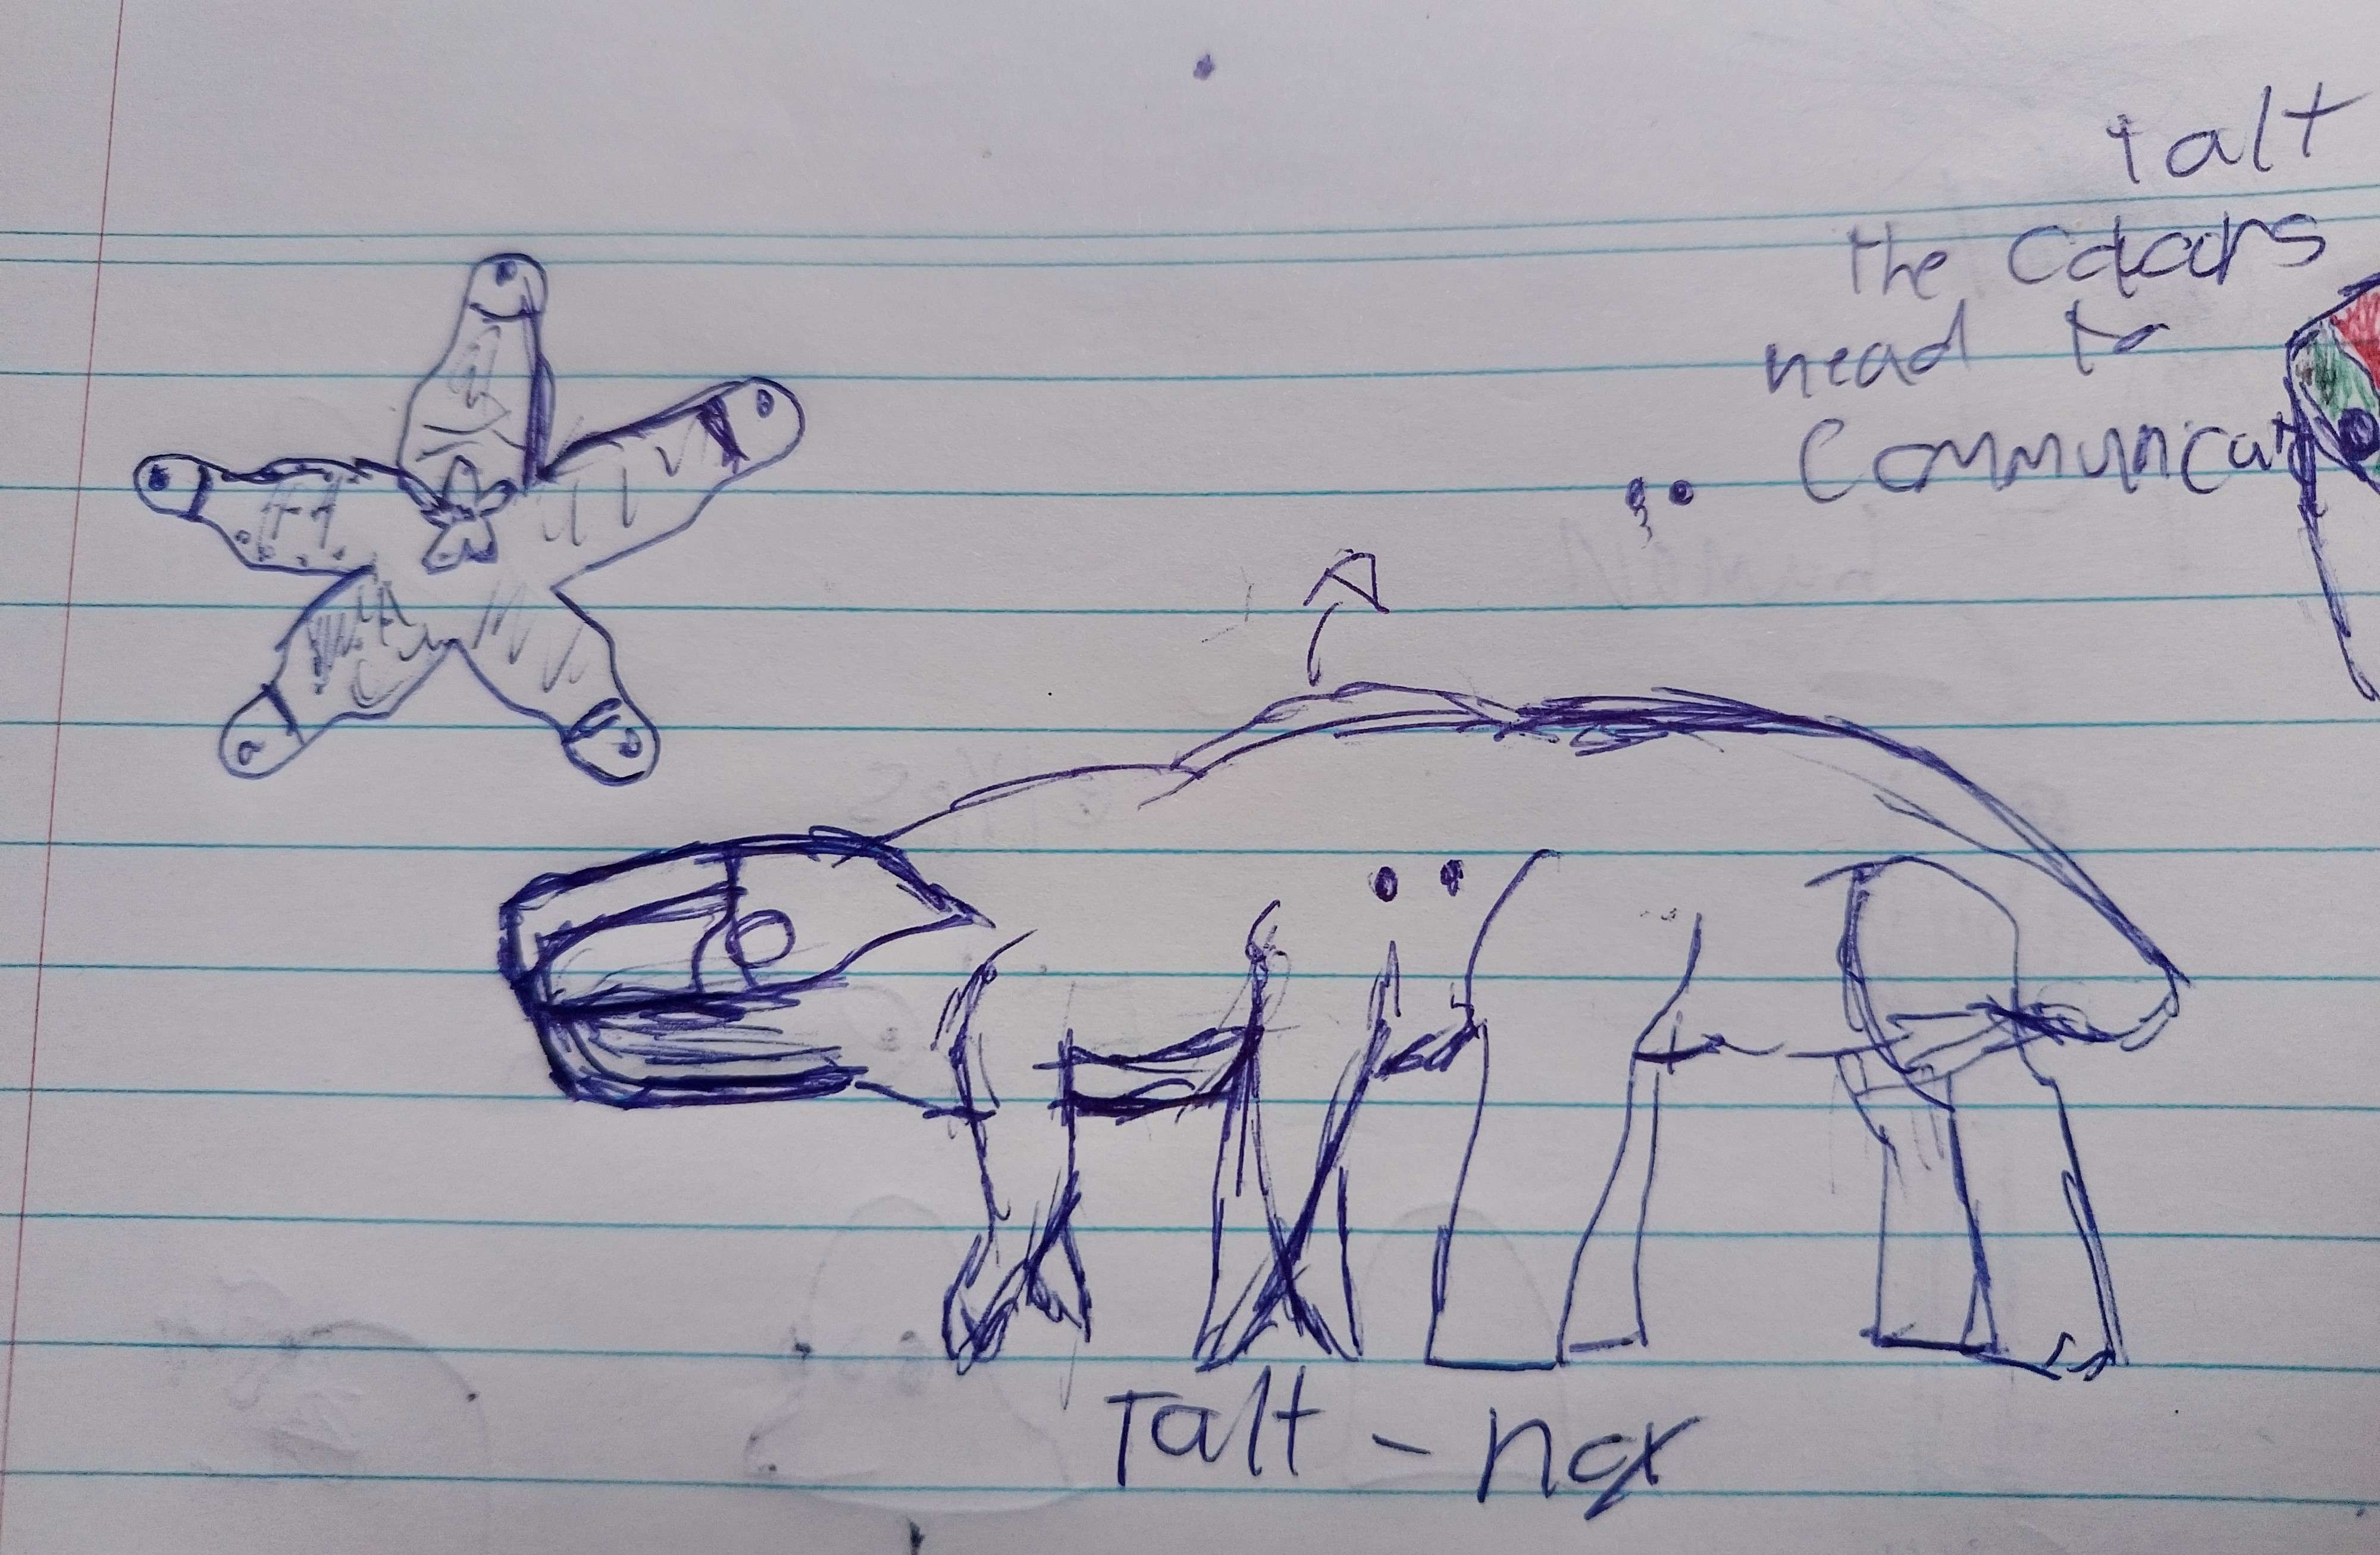 talt
the Colours
nead to
Communicat
Talt - nox